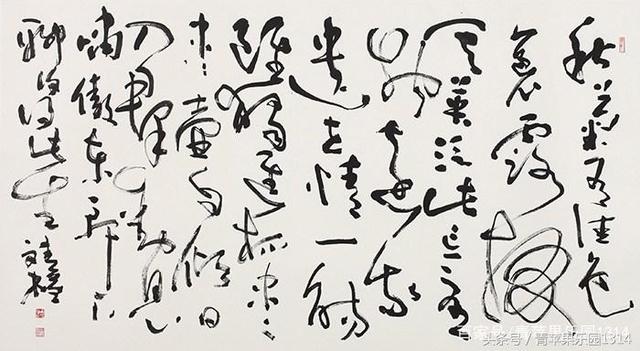 秋菊有佳色
裛露掇
其英泛此忘憂
物遠我
遺世情一觴
雖獨進杯
盡壺自傾日
入群動息
嘯傲東軒下
聊復得此生
百家号/青苹果乐园1314
头条号 / 青苹果乐园1314